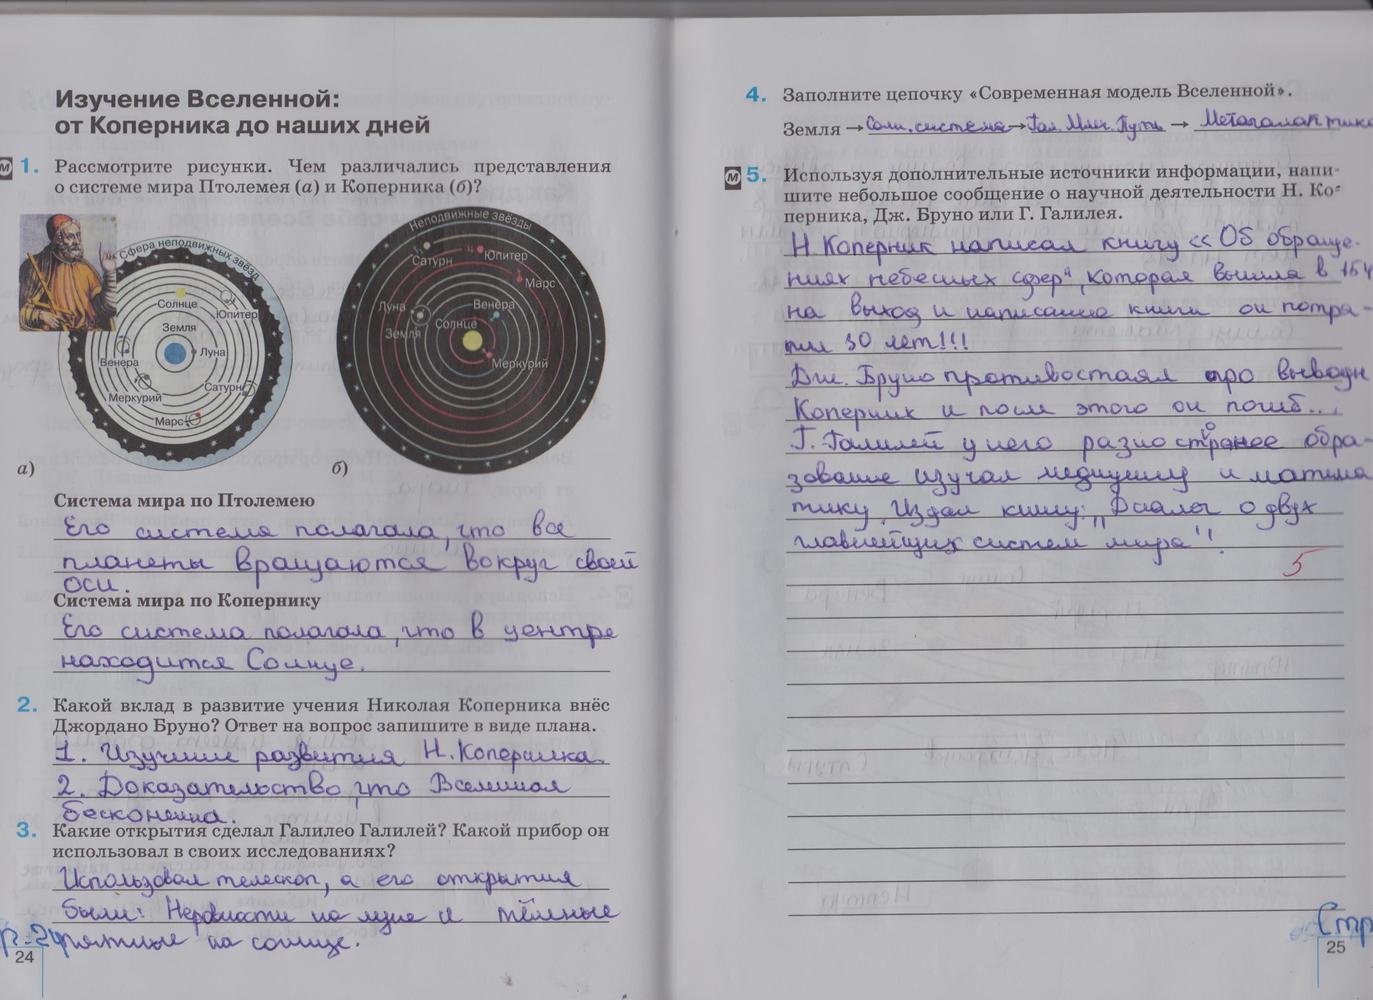 Изучение Вселенной:
от Коперника до наших дней
М 1. Рассмотрите рисунки. Чем различались представления
о системе мира Птолемея (а) и Коперника (б)?
Сфера неподвижных звёзд
Солнце
Юпитер
Земля
Луна
Венера
Меркурий
Сатурн
Марс
а)
Неподвижные звёзды
Сатурн
Юпитер
Марс
Луна
Венера
Земля
Солнце
Меркурий
б)
Система мира по Птолемею
Его система полагала, что все
планеты вращаются вокруг своей
оси.
Система мира по Копернику
Его система полагала, что в центре
находится Солнце.
2. Какой вклад в развитие учения Николая Коперника внёс
Джордано Бруно? Ответ на вопрос запишите в виде плана.
1. Изучение развития Н. Коперника.
2. Доказательство, что Вселеная
бесконечна.
3. Какие открытия сделал Галилео Галилей? Какой прибор он
использовал в своих исследованиях?
Использовал телескоп, а его открытия
были: Неровности на луне и тёмные
на солнце.
24
4. Заполните цепочку «Современная модель Вселенной».
Земля → Солн. система → Гал. Млеч. Путь → Метагалактика
М 5. Используя дополнительные источники информации, напи-
шите небольшое сообщение о научной деятельности Н. Ко-
перника, Дж. Бруно или Г. Галилея.
Н. Коперник написал книгу «Об обраще-
ниях небесных сфер", которая вышла в 154
на выход и написание книги он потра-
тил 30 лет!!!
Дж. Бруно противостоял про выводы
Коперник и после этого он погиб...
Г. Галилей у него разностороннее обра-
зование изучал медицину и матема
тику. Издал книгу: „Диалог о двух
главнейших систем мира"!
5
Стр
25